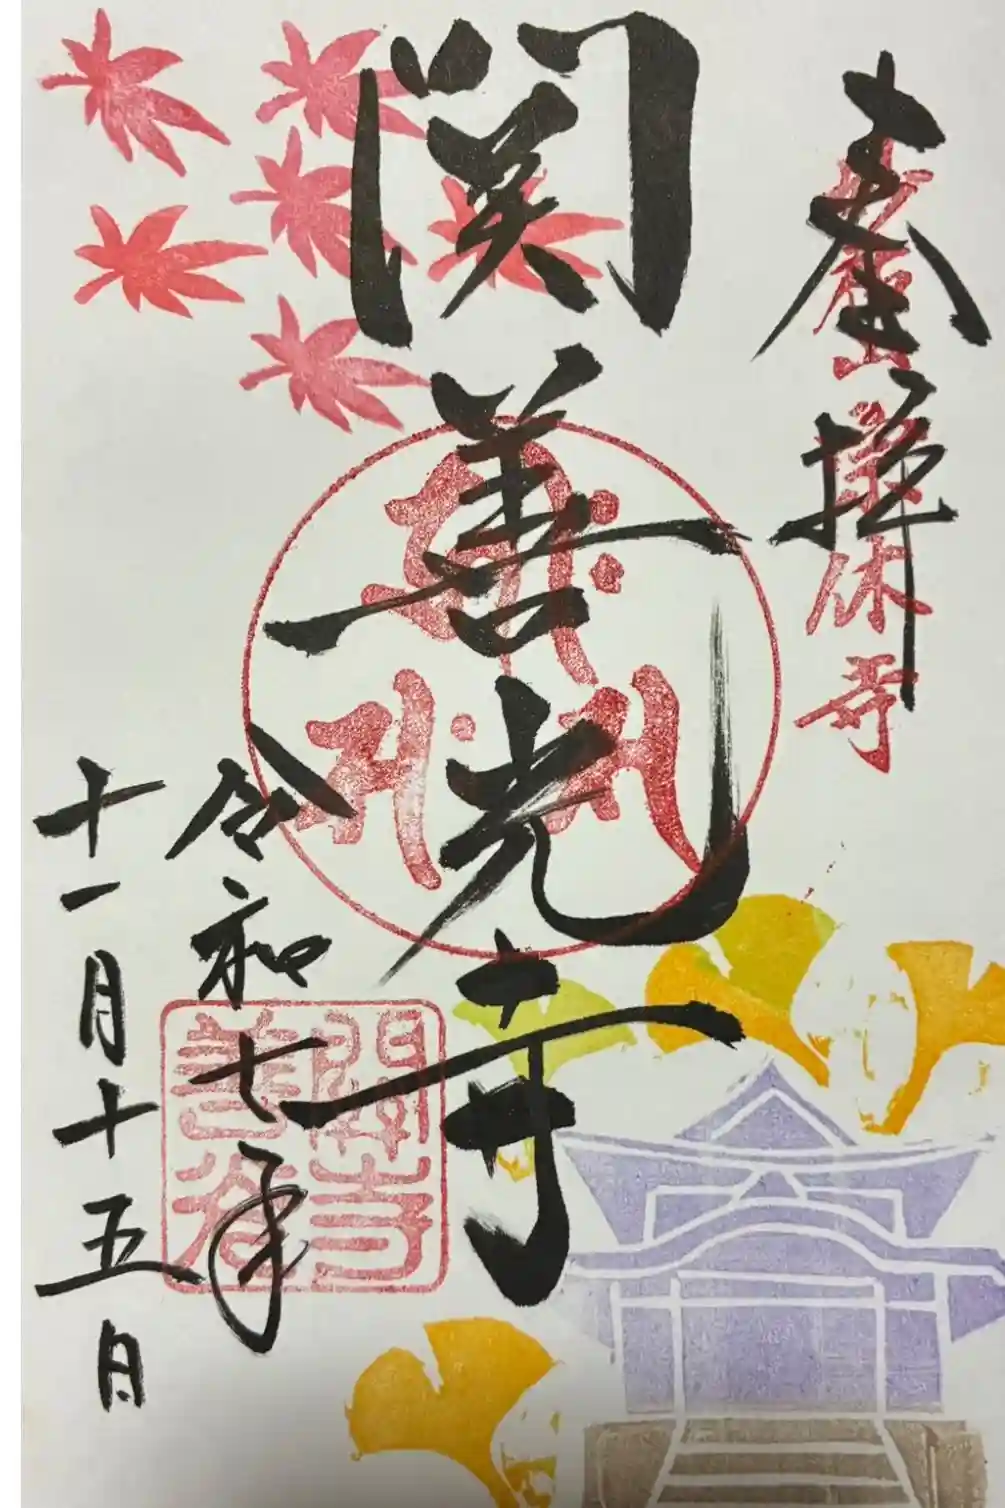 奉拝
妙祐山宗休寺
関善光寺
令和七年
十一月十五日
關善光寺